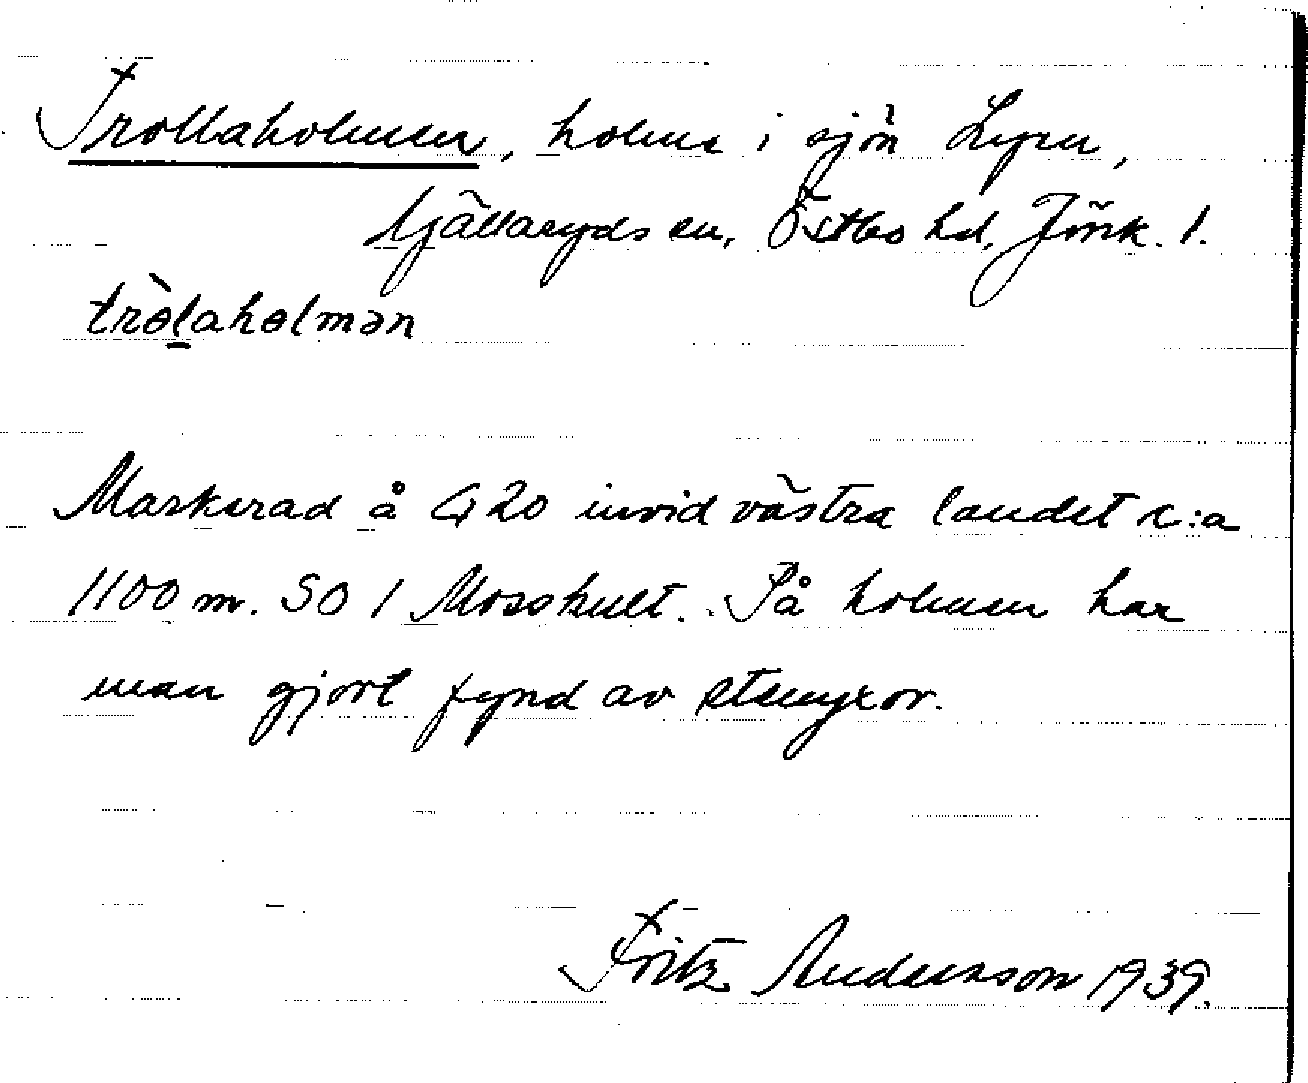 Trollaholmen, holme i sjön Lyen,
Gällaryds sn, Östbo hd, Jönk. l.
tròlaholmən
Markerad å G 20 invid västra landet c:a
1100 m. SO / Mosshult. På holmen har
man gjort fynd av stenyxor.
Fritz Andersson 1939.